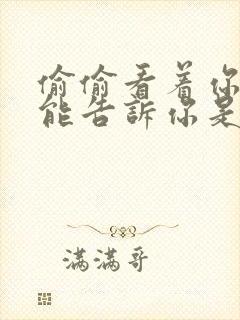 偷偷看着你
能告訴你是
滿滿哥